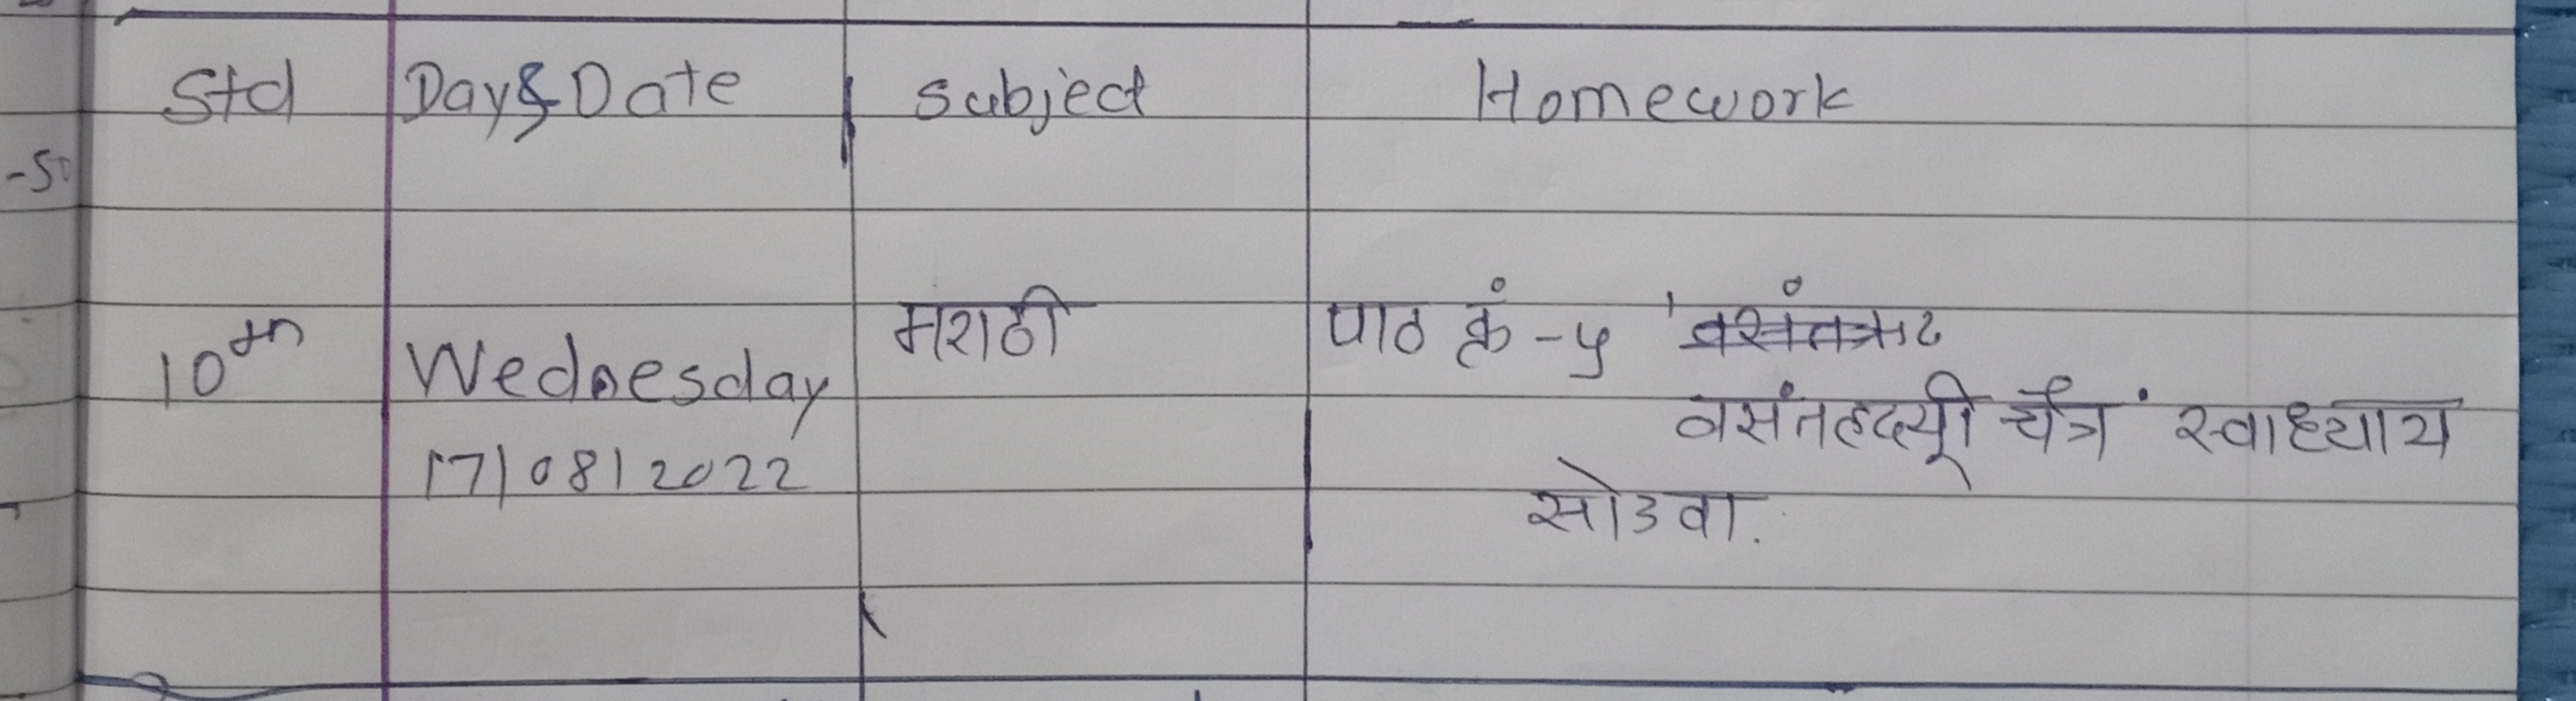 Std Day & Date Subject Homework
10th Wednesday मराठी पाठ क्रं - ५ '
वसंतहृदयी चैत्र स्वाध्याय
17/08/2022
सोडवा.